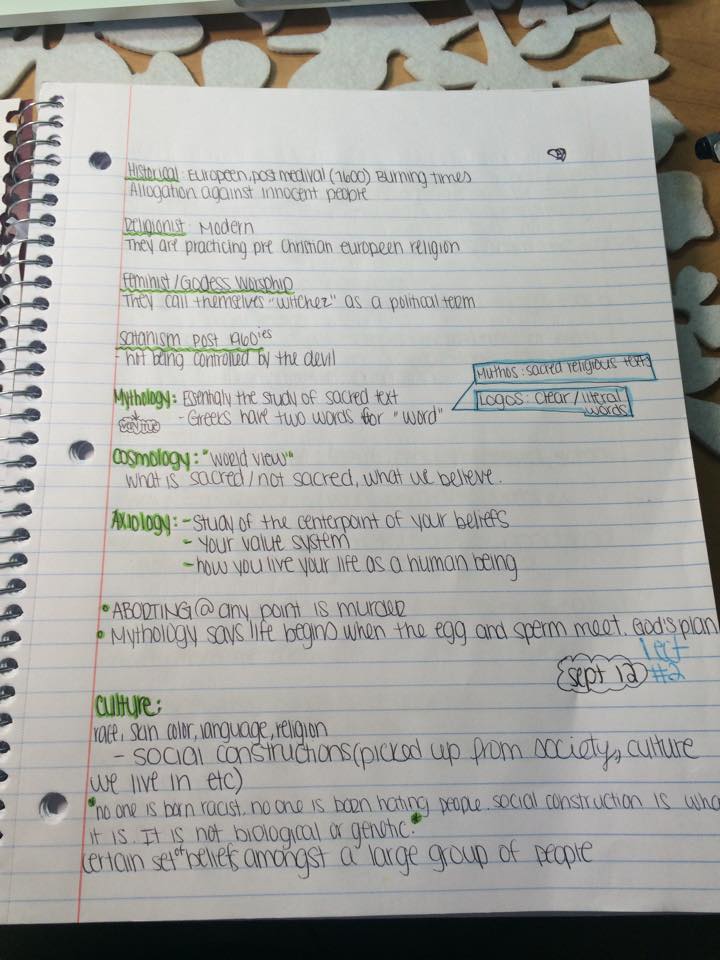 Historical: Europeen, post medival (1600) Burning times
Allogation against innocent people
Religionist Modern
They are practicing pre Christian europeen religion
Feminist/Godess Worship
They call themselves "witchez" as a political term
Satanism post 1960ies
- not being controlled by the devil
Mythology: Essentialy the study of sacred text
- Greeks have two words for "word"
Muthos: sacred religious texts
Logos: Clear/literal
words
Cosmology: "world view"
what is sacred/not sacred, what we believe.
Axiology: - Study of the centerpoint of your beliefs
- Your value system
- how you live your life as a human being
• ABORTING @ any point is murder
• Mythology says life begins when the egg and sperm meet. God's plan
Lect
sept 12 #2
Culture:
race, skin color, language, religion
- social constructions (picked up from society, culture
we live in etc)
*no one is born racist. no one is born hating people. social construction is wha
it is. It is not biological or genetic.*
Certain set of beliefs amongst a large group of people